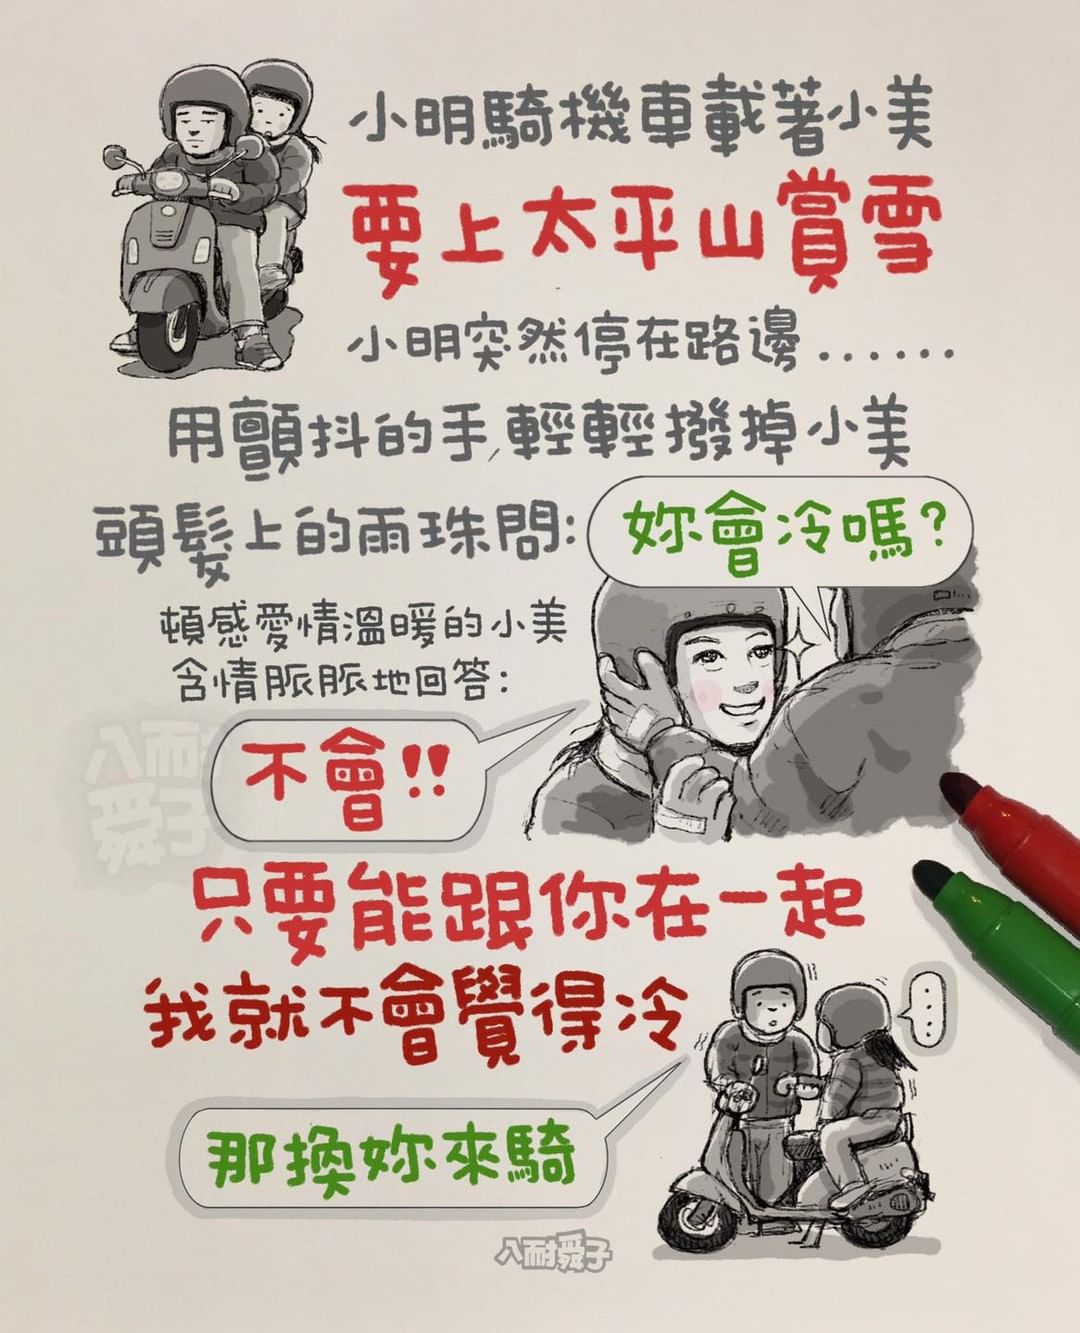 小明騎機車載著小美
要上太平山賞雪
小明突然停在路邊......
用顫抖的手,輕輕撥掉小美
頭髮上的雨珠問:
妳會冷嗎?
頓感愛情溫暖的小美
含情脈脈地回答:
不會!!
八耐
舜子
只要能跟你在一起
我就不會覺得冷
....
那換妳來騎
八耐舜子